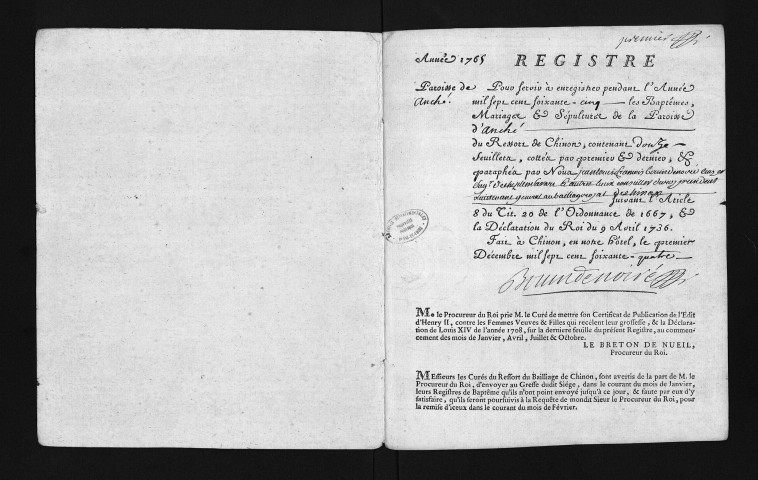 premier
Année 1765 REGISTRE
Paroisse de Anché.
Pour servir à enregistrer pendant l'Année
mil sept cent soixante-cinq les Baptêmes,
Mariages & Sépultures de la Paroisse
d'anché
du Ressort de Chinon, contenant douze
feuillets, cottés par premier & dernier, &
paraphés par Nous
Lieutenant general au bailliage royal de chinon suivant l'Article
8 du Tit. 20 de l'Ordonnance de 1667, &
la Déclaration du Roi du 9 Avril 1736.
Fait à Chinon, en notre hôtel, le premier
Décembre mil sept cent soixante-quatre
Mr le Procureur du Roi prie M. le Curé de mettre son Certificat de Publication de l'Edit
d'Henry II, contre les Femmes Veuves & Filles qui recèlent leur grossesse, & la Déclara-
tion de Louis XIV de l'année 1708, sur la derniere feuille du présent Registre, au commen-
cement des mois de Janvier, Avril, Juillet & Octobre.
LE BRETON DE NUEIL,
Procureur du Roi.
MEssieurs les Curés du Ressort du Bailliage de Chinon, sont avertis de la part de M. le
Procureur du Roi, d'envoyer au Greffe dudit Siége, dans le courant du mois de Janvier,
leurs Registres de Baptême qu'ils n'ont point envoyé jusqu'à ce jour, & faute par eux d'y
satisfaire, qu'ils seront poursuivis à la Requête de mondit Sieur le Procureur du Roi, pour
la remise d'iceux dans le courant du mois de Février.